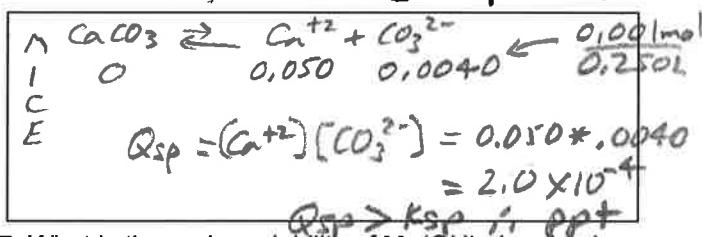 M CaCO3 ⇄ Ca+2 + CO3 2- ← 0.001mol
I 0 0.050 0.0040 0.250L
C
E Qsp = [Ca+2] [CO3 2-] = 0.050 * .0040
= 2.0 x 10-4
Qsp > Ksp ∴ ppt